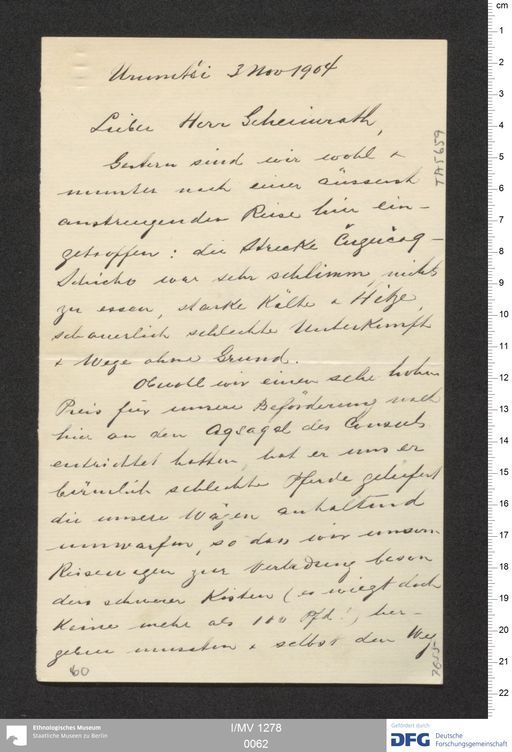 Urumtsi 3 Nov 1904
Lieber Herr Geheimrath,
Gestern sind wir wohl &
munter nach einer äusserst
anstrengenden Reise hier ein-
getroffen: die Strecke Čugučaq-
Schicho war sehr schlimm, nichts
zu essen, starke Kälte & Hitze,
schauerlich schlechte Unterkunft
& Wege ohne Grund.
Obwohl wir einen sehr hohen
Preis für unsere Beförderung nach
hier an den Aqsaqal des Consuls
entrichtet hatten, hat er uns er
bärmlich schlechte Pferde geliefert
die unsere Wägen anhaltend
umwarfen, so dass wir unsern
Reisewagen zur Verladung beson
ders schwerer Kisten (es wiegt doch
keine mehr als 100 Pfd!) her-
geben mussten & selbst den Weg
60
TA 5659
7655
cm
1
2
3
4
5
6
7
8
9
10
11
12
13
14
15
16
17
18
19
20
21
22
Ethnologisches Museum
Staatliche Museen zu Berlin
I/MV 1278
0062
Gefördert durch
DFG Deutsche
Forschungsgemeinschaft